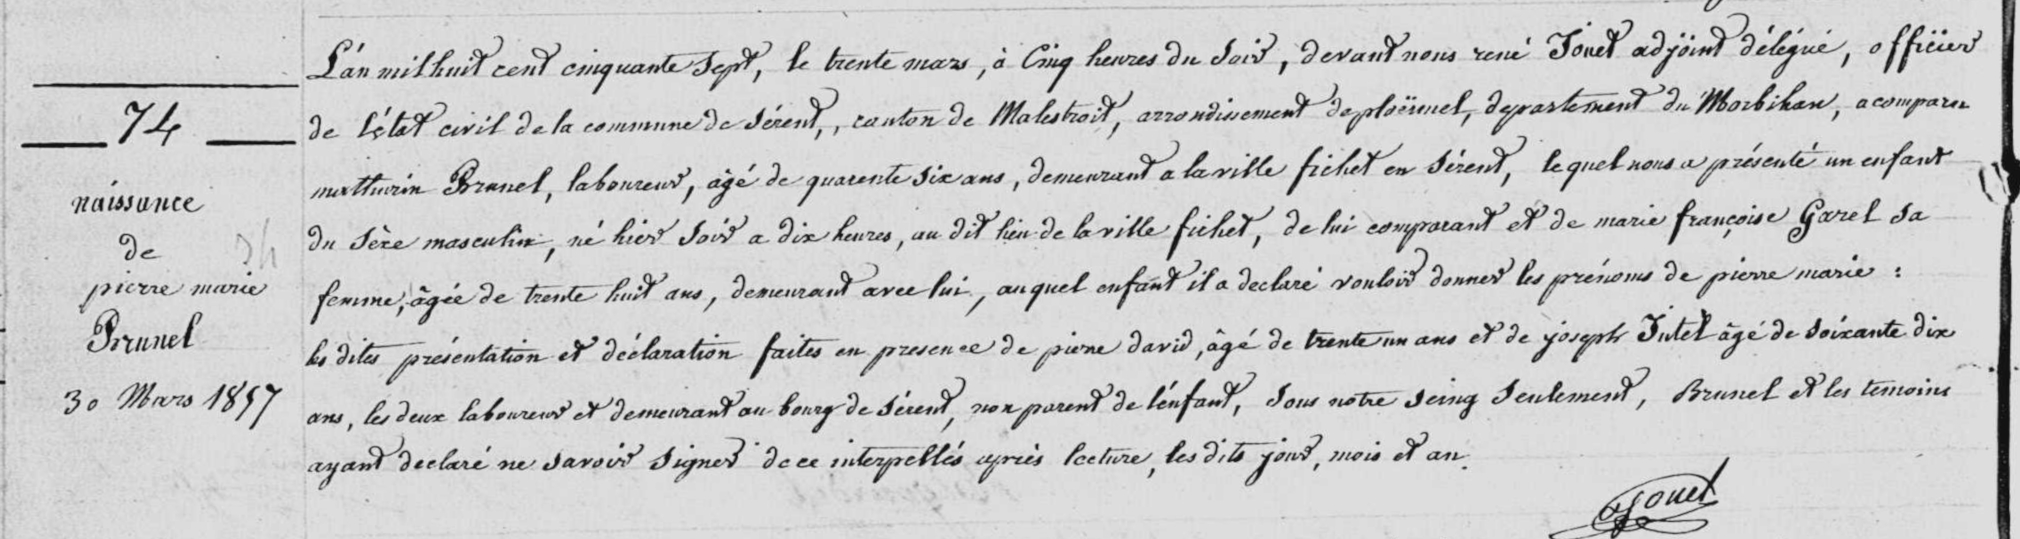 74
naissance
de
pierre marie
Brunel
30 Mars 1857
L'án mil huit cent cinquante Sept, le trente mars, à Cinq heures du Soir, devant nous rené Jouet adjöint délégué, officier
de l'état civil de la commune de Sérent, canton de Malestroit, arrondissement de ploërmel, departement du Morbihan, a comparu
mathurin Brunel, laboureur, âgé de quarente Six ans, demeurant a la ville fichet en Sérent, lequel nous a présenté un enfant
du Sèxe masculin, né hier Soir a dix heures, au dit lieu de la ville fichet, de lui comparant et de marie françoise Garel Sa
femme, âgée de trente huit ans, demeurant avec lui, auquel enfant il a declaré vouloir donner les prénoms de pierre marie :
les dites présentation et déclaration faites en presence de pierre david, âgé de trente un ans et de joseph Jutel âgé de Soixante dix
ans, les deux laboureur et demeurant au bourg de Sérent, non parent de l'énfant, Sous notre Seing Seulement, Brunel et les temoins
ayant declaré ne Savoir Signer de ce interpellés après lecture, les dits jour, mois et an.
Jouet